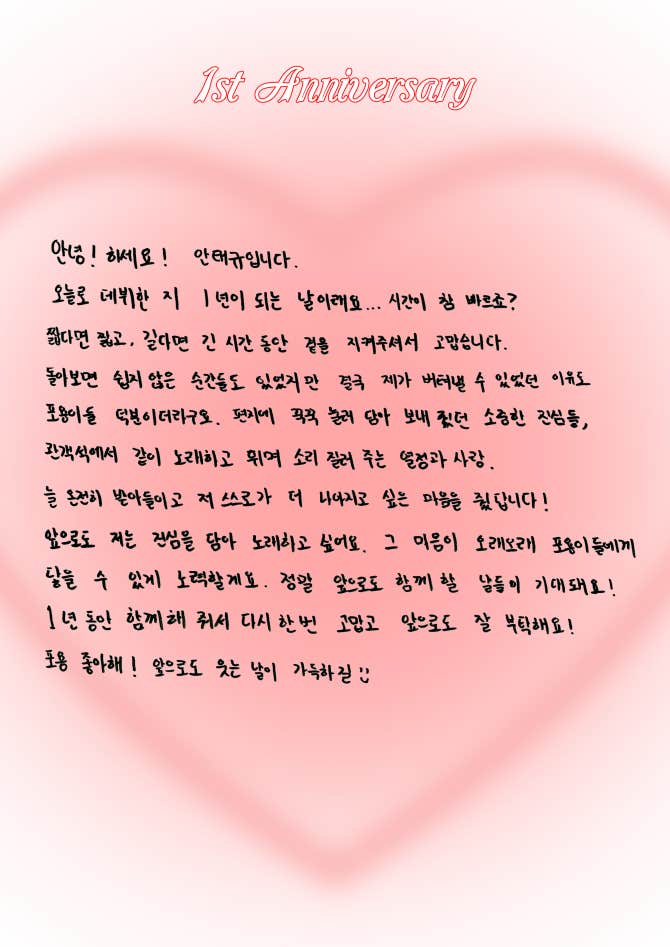 1st Anniversary
안녕! 하세요! 안태규입니다.
오늘로 데뷔한 지 1년이 되는 날이래요... 시간이 참 빠르죠?
짧다면 짧고, 길다면 긴 시간 동안 곁을 지켜주셔서 고맙습니다.
돌아보면 쉽지 않은 순간들도 있었지만 결국 제가 버텨낼 수 있었던 이유도
포용이들 덕분이더라구요. 편지에 꾹꾹 눌러 담아 보내줬던 소중한 진심들,
관객석에서 같이 노래하고 뛰며 소리 질러 주는 열정과 사랑.
늘 온전히 받아들이고 저 스스로가 더 나아지고 싶은 마음을 줬답니다!
앞으로도 저는 진심을 담아 노래하고 싶어요. 그 마음이 오래오래 포용이들에게
닿을 수 있게 노력할게요. 정말 앞으로도 함께 할 날들이 기대돼요!
1년 동안 함께해 줘서 다시 한번 고맙고 앞으로도 잘 부탁해요!
포용 좋아해! 앞으로도 웃는 날이 가득하길 :)